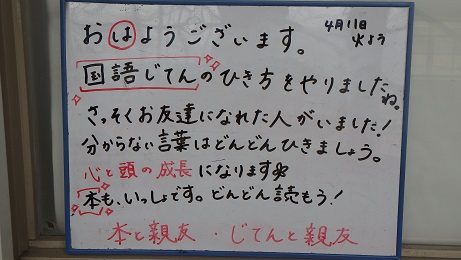 おはようございます。
4月11日
火よう
国語じてんのひき方をやりましたね。
さっそくお友達になれた人がいました!
分からない言葉はどんどんひきましょう。
心と頭の成長になります
本も、いっしょです。どんどん読もう!
本と親友・じてんと親友